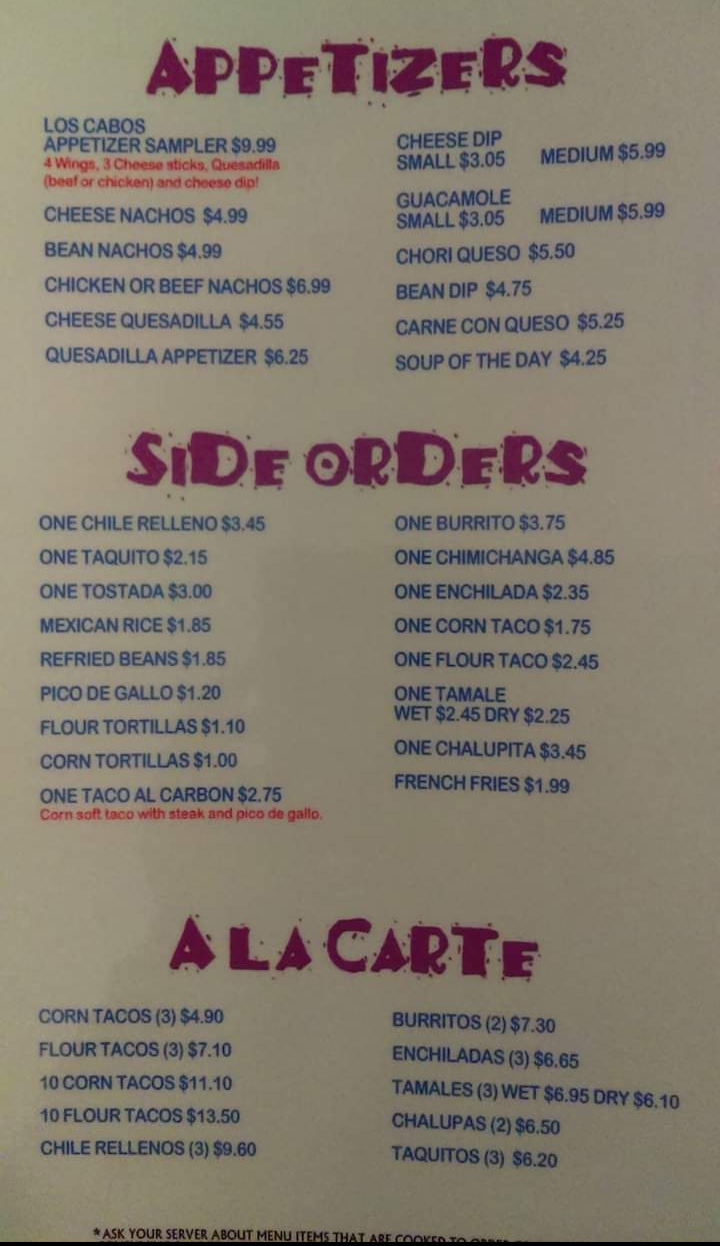 APPETIZERS
LOS CABOS
APPETIZER SAMPLER $9.99
4 Wings, 3 Cheese sticks, Quesadilla
(beef or chicken) and cheese dip!
CHEESE NACHOS $4.99
BEAN NACHOS $4.99
CHICKEN OR BEEF NACHOS $6.99
CHEESE QUESADILLA $4.55
QUESADILLA APPETIZER $6.25
CHEESE DIP
SMALL $3.05 MEDIUM $5.99
GUACAMOLE
SMALL $3.05 MEDIUM $5.99
CHORI QUESO $5.50
BEAN DIP $4.75
CARNE CON QUESO $5.25
SOUP OF THE DAY $4.25
SIDE ORDERS
ONE CHILE RELLENO $3.45
ONE TAQUITO $2.15
ONE TOSTADA $3.00
MEXICAN RICE $1.85
REFRIED BEANS $1.85
PICO DE GALLO $1.20
FLOUR TORTILLAS $1.10
CORN TORTILLAS $1.00
ONE TACO AL CARBON $2.75
Corn soft taco with steak and pico de gallo.
ONE BURRITO $3.75
ONE CHIMICHANGA $4.85
ONE ENCHILADA $2.35
ONE CORN TACO $1.75
ONE FLOUR TACO $2.45
ONE TAMALE
WET $2.45 DRY $2.25
ONE CHALUPITA $3.45
FRENCH FRIES $1.99
A LA CARTE
CORN TACOS (3) $4.90
FLOUR TACOS (3) $7.10
10 CORN TACOS $11.10
10 FLOUR TACOS $13.50
CHILE RELLENOS (3) $9.60
BURRITOS (2) $7.30
ENCHILADAS (3) $6.65
TAMALES (3) WET $6.95 DRY $6.10
CHALUPAS (2) $6.50
TAQUITOS (3) $6.20
*ASK YOUR SERVER ABOUT MENU ITEMS THAT ARE COOKED TO ORDER